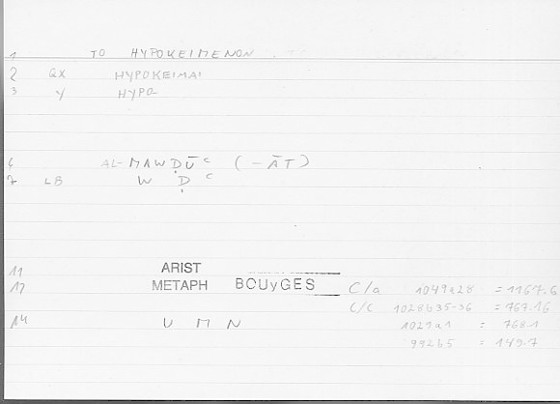 1 TO HYPOKEIMENON
2 QX HYPOKEIMAI
3 Y HYPO
6 AL-MAWḌŪᶜ (-ĀT)
7 LB W Ḍ ᶜ
11 ARIST
12 METAPH BOUyGES C/a 1049a28 = 1167.6
C/c 1028b35-36 = 767.16
14 U M N 1029a1 = 768.1
992b5 = 149.7